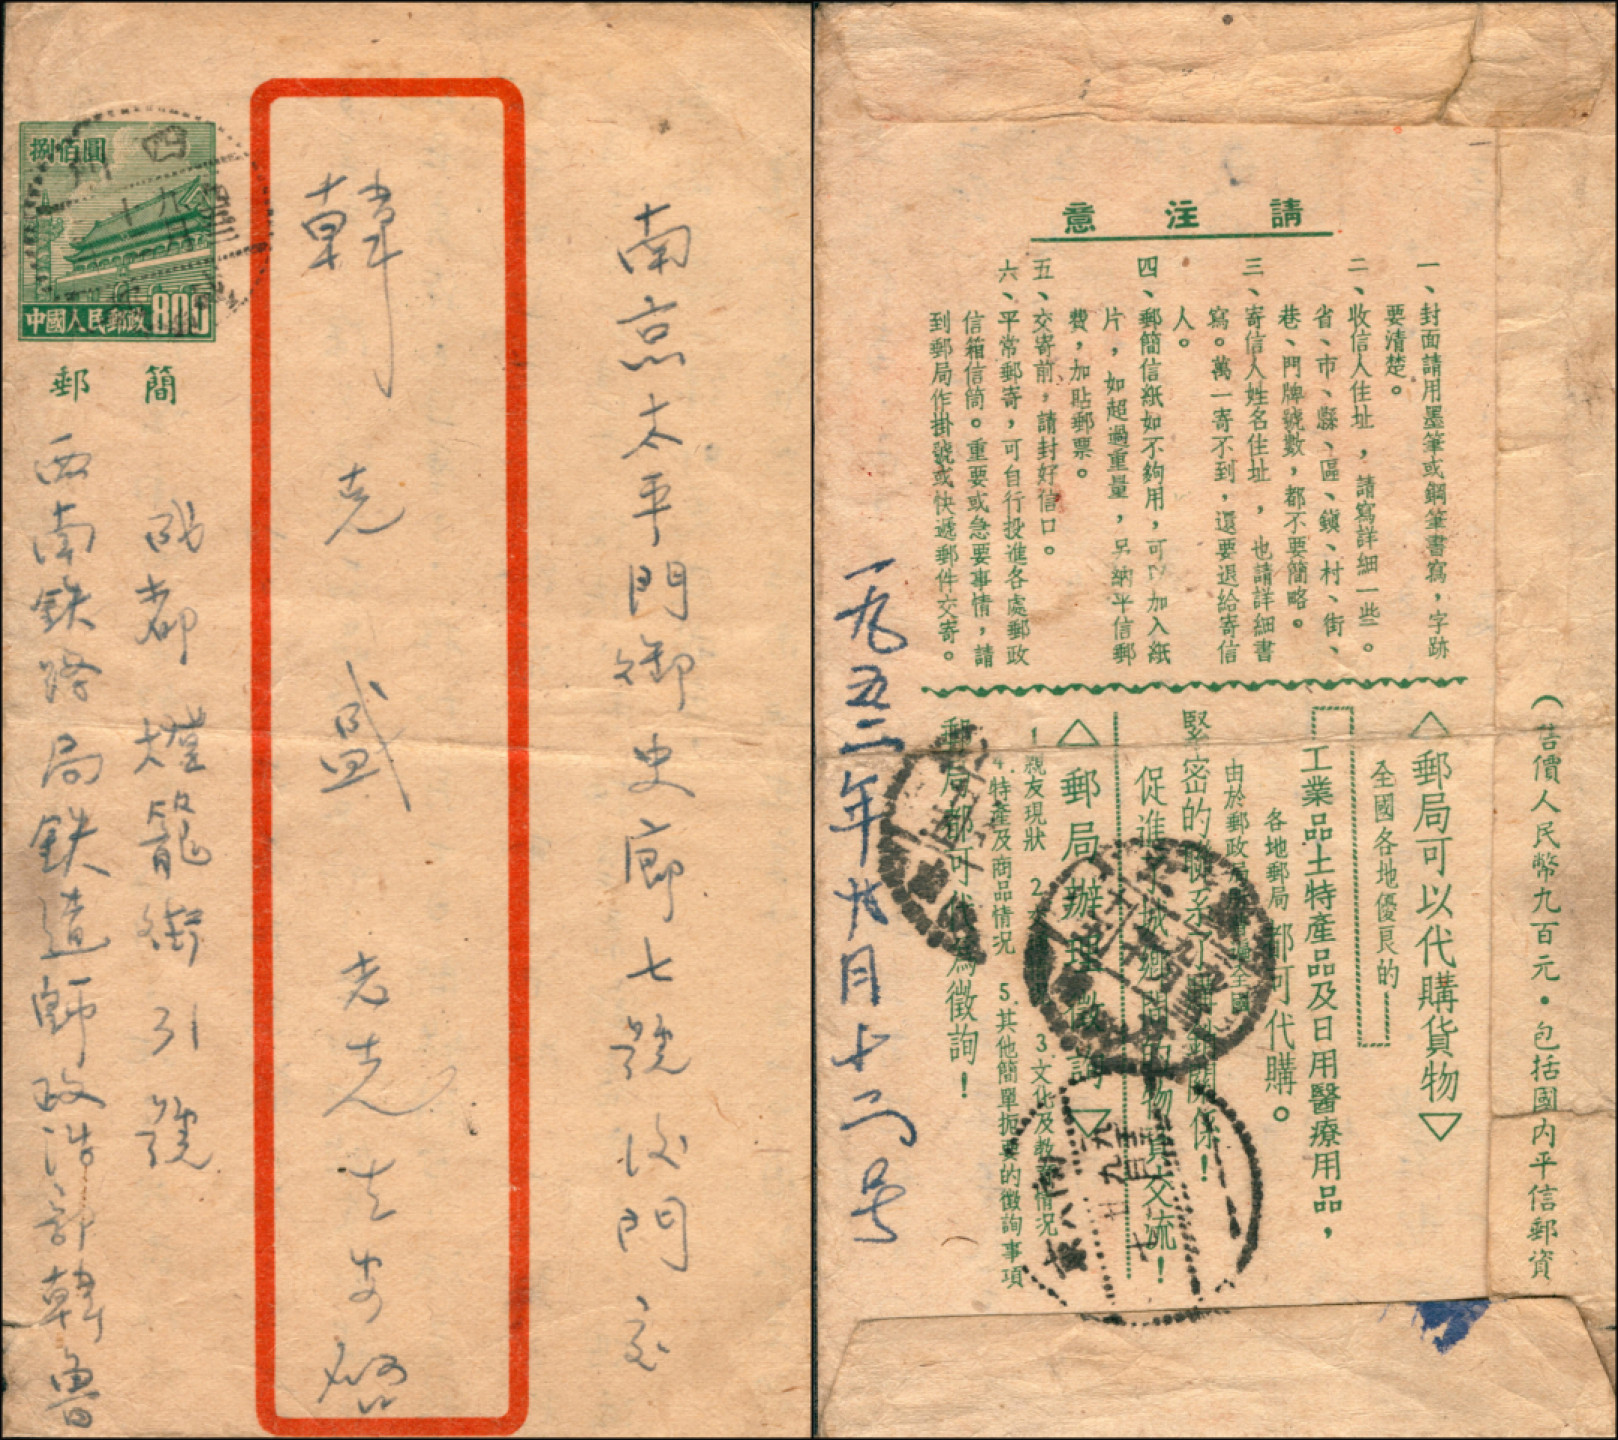 捌佰圓
中國人民郵政 800
郵簡
四川
南京太平門御史廊七號後門交
韓克盛老先生安啓
成都燈籠街引號
西南鉄路局鉄道師政治部韓魯
請注意
一、封面請用墨筆或鋼筆書寫，字跡
要清楚。
二、收信人住址，請寫詳細一些。
省、市、縣、區、鎮、村、街、
巷、門牌號數，都不要簡略。
三、寄信人姓名住址，也請詳細書
寫。萬一寄不到，還要退給寄信
人。
四、郵簡信紙如不夠用，可以加入紙
片，如超過重量，另納平信郵
費，加貼郵票。
五、交寄前，請封好信口。
六、平常郵寄，可自行投進各處郵政
信箱信筒。重要或急要事情，請
到郵局作掛號或快遞郵件交寄。
（售價人民幣九百元·包括國內平信郵資
△郵局可以代購貨物▽
全國各地優良的
工業品土特產品及日用醫療用品，
各地郵局都可代購。
由於郵政局 全國
緊密的聯系了購銷關係！
促進了城鄉間的物資交流！
△郵局辦理徵詢▽
1.親友現狀 2. 3.文化及教育情況
4.特產及商品情況 5.其他簡單扼要的徵詢事項
郵局都可代為徵詢！
一九五二年九月十二号